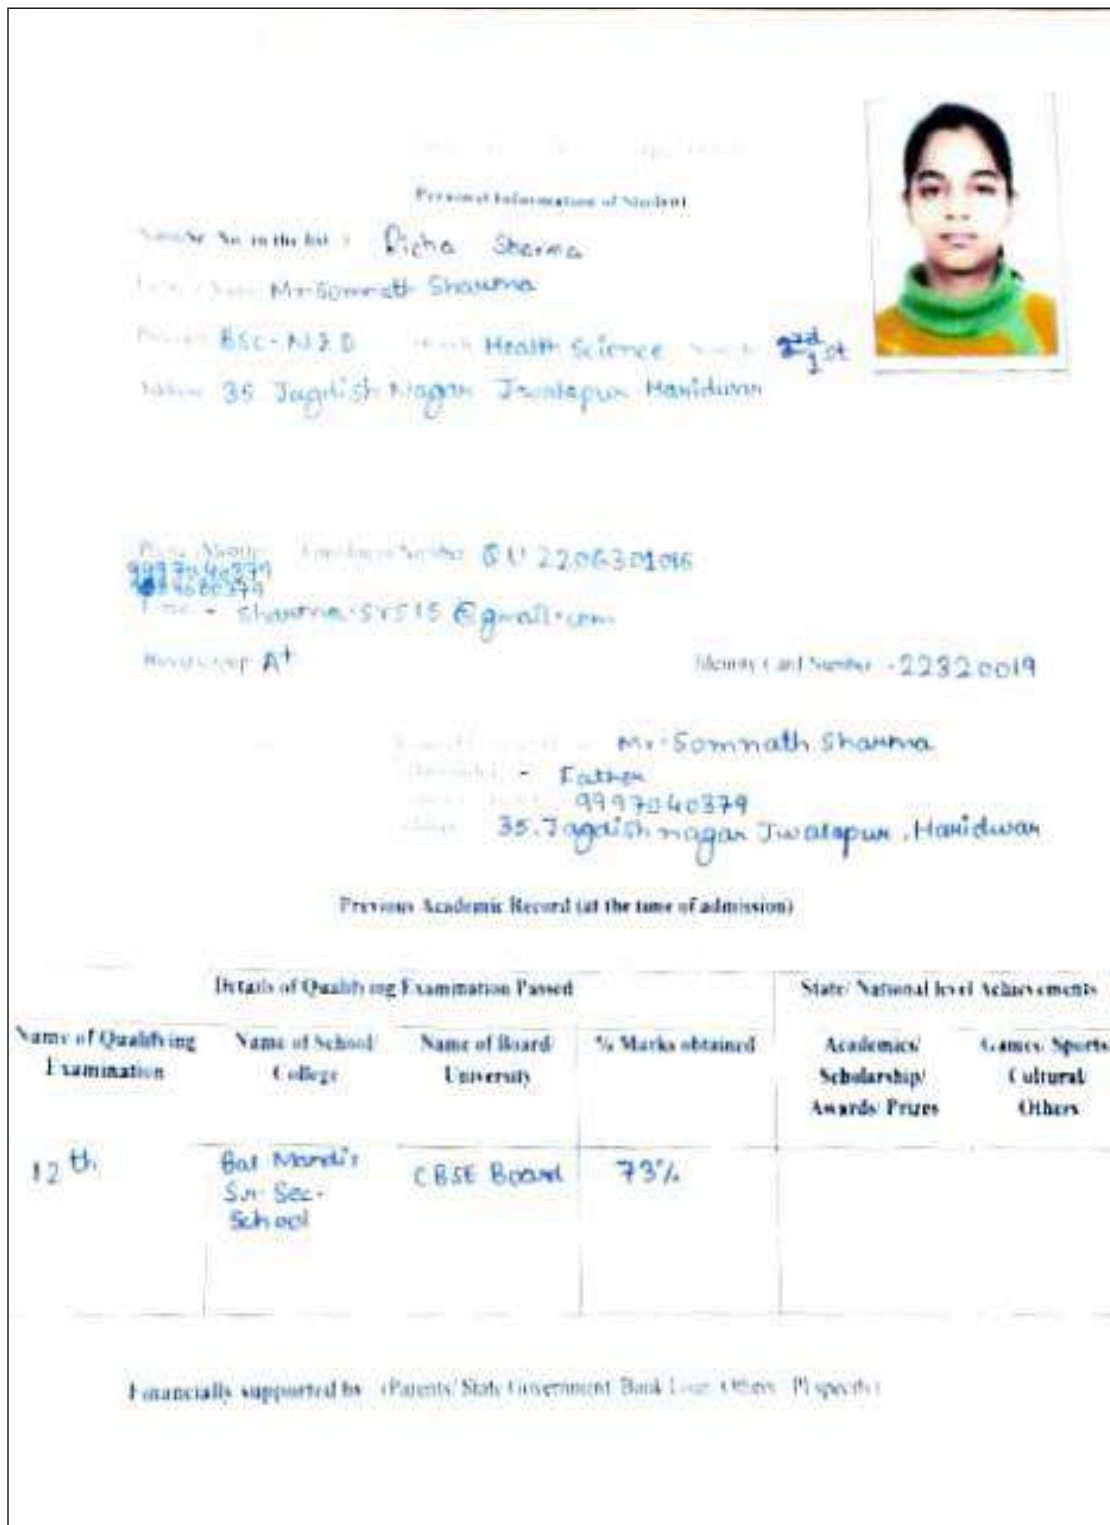 Personal Information of Student
No. in the list : Richa Sharma
Mr. Somnath Sharma
BSc- N&D Health Science 1st
35 Jagdish Nagar Jwalapur Haridwar
Number
9997040379
sharma.sr515@gmail.com
A+ Identity Card Number - 22320019
Mr. Somnath Sharma
- Father
9997040379
35. Jagdish nagar Jwalapur, Haridwar
Previous Academic Record (at the time of admission)
Details of Qualifying Examination Passed State/ National level Achievements
Name of Qualifying Examination Name of School/ College Name of Board/ University % Marks obtained Academics/ Scholarship/ Awards/ Prizes Games/ Sports/ Cultural/ Others
12th Bal Mandir Sr. Sec. School CBSE Board 73%
Financially supported by (Parents/ State Government/ Bank Loan/ Others Pl specify)